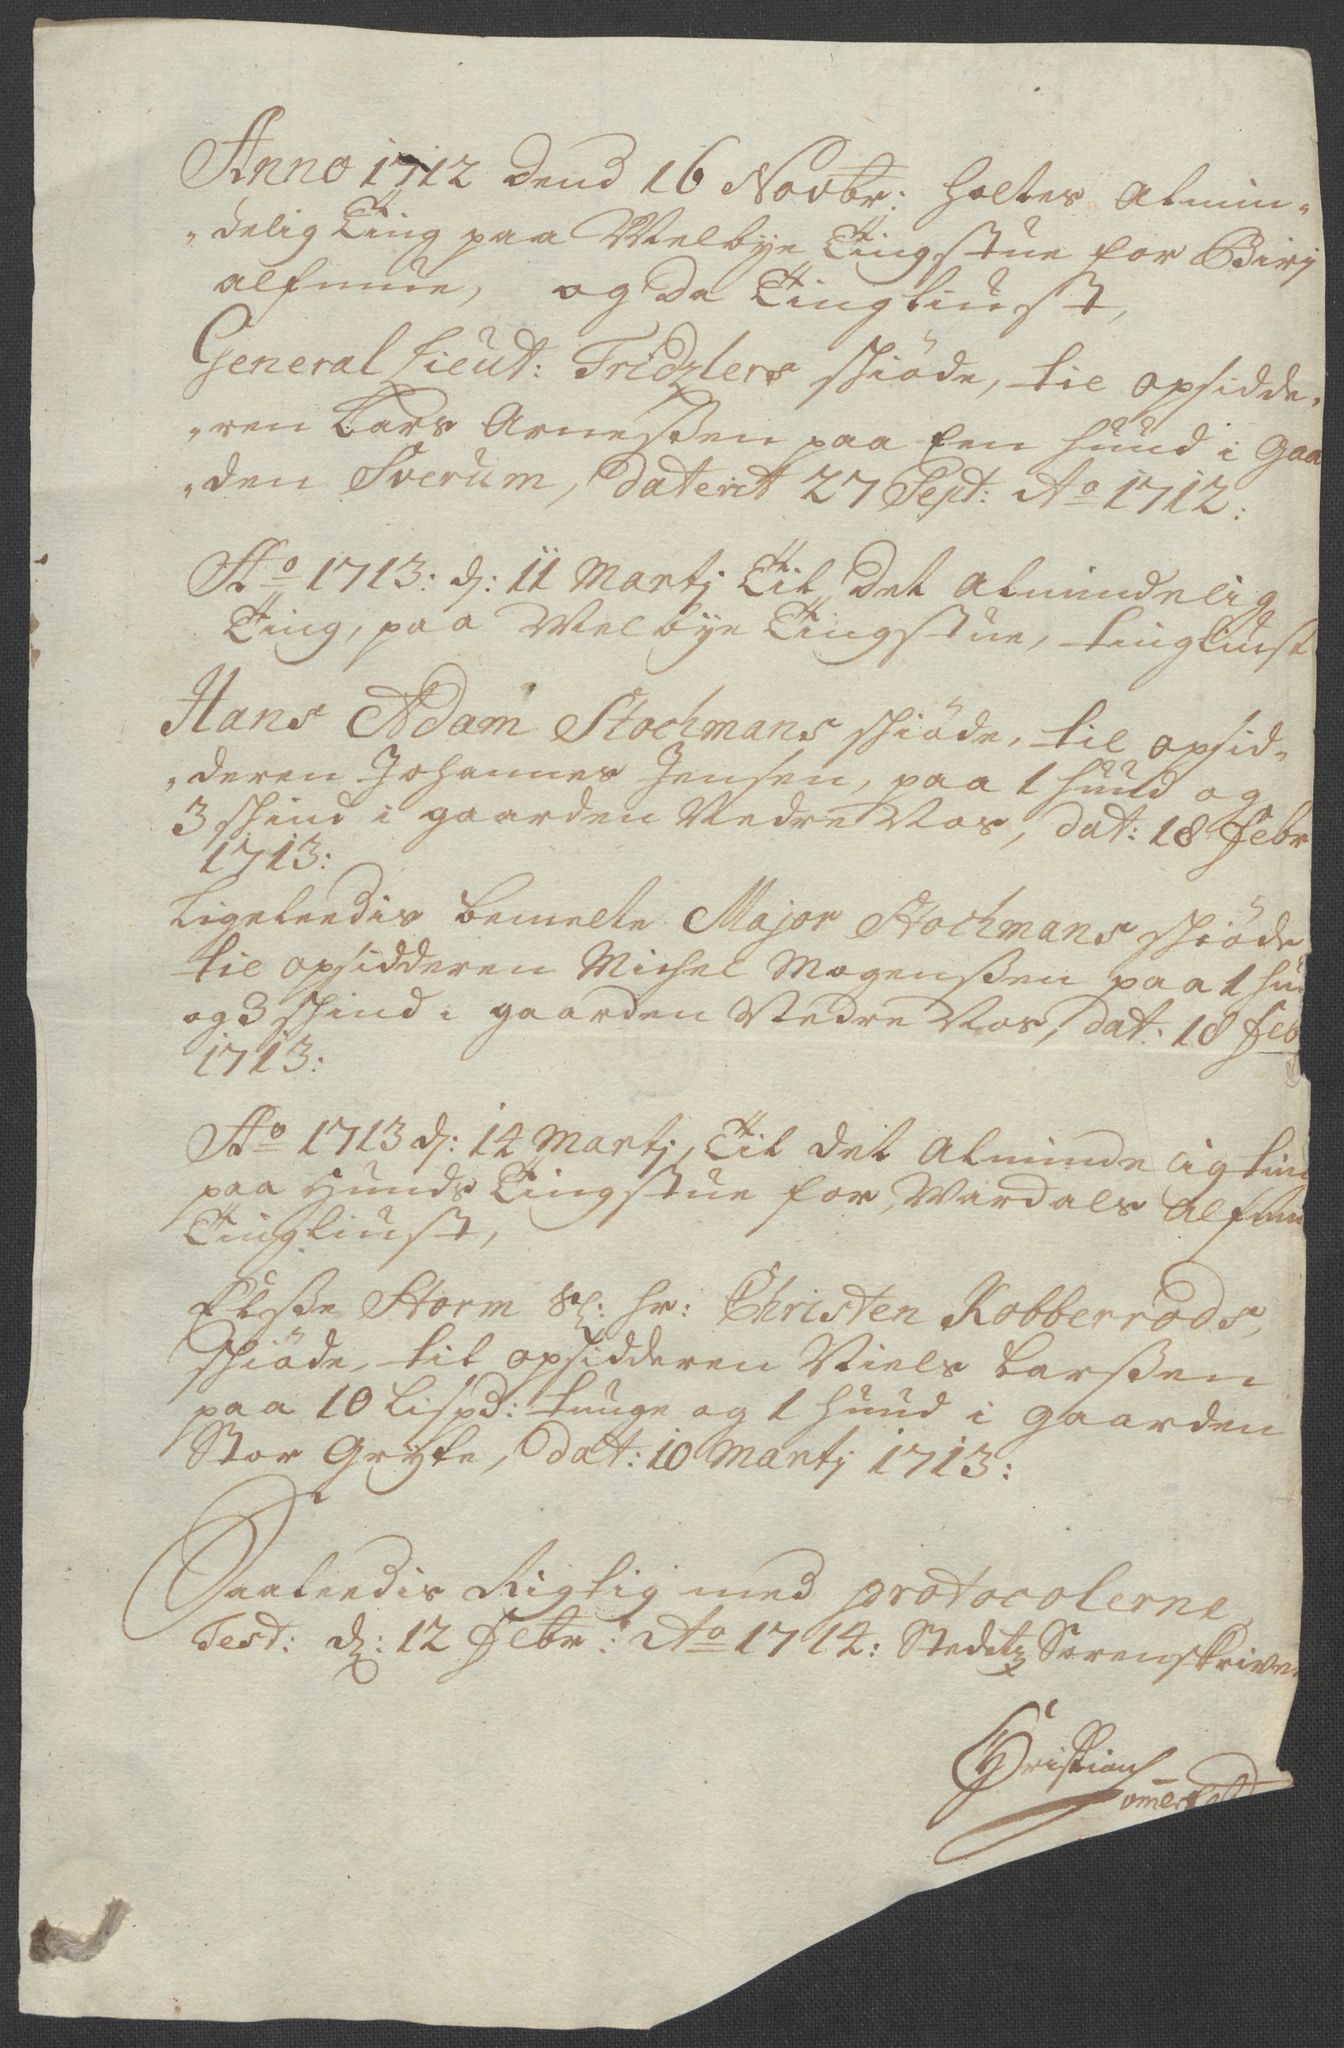 Anno 1712 dend 16 Novbr: holtes Almin-
-delig Ting paa Melbye Tingstue for Birj
Almue, og da Tingliust,
General Lieut: Tridzlers skiöde, til opsidde-
-ren Lars Arneßen paa een huud i gaa
-den Sverum, daterit 27 Sept: Ao 1712:
Ao 1713: d: 11 Martj Til det Almindelig
Ting, paa Melbye Tingstue, tingliust
Hans Adam Stochmans skiöde, til opsid-
-deren Johannes Jensen, paa 1 huud og
3 skind i gaarden Nedre Aas, dat: 18 Febr
1713:
Ligeleedis bemelte Major Stochmans skiöde
til opsidderen Michel Mogenßen paa 1 hu
og 3 skind i gaarden Nedre Aas, dat: 18 Feb
1713:
Ao 1713 d: 14 Martj, Til det Almindelig tin
paa Hunds Tingstue for Wardals Almu
Tingliust,
Elße Storm Sl: hr: Christen Kobberrods,
skiöde, til opsidderen Niels Larßen
paa 10 Lispd: tunge og 1 huud i gaarden
Stor Gryte, dat: 10 Martj 1713:
Saaleedis Rigtig med protocolerne
Test: d: 12 Febr: Ao 1714: Stedetz Sorenskriver
Christian